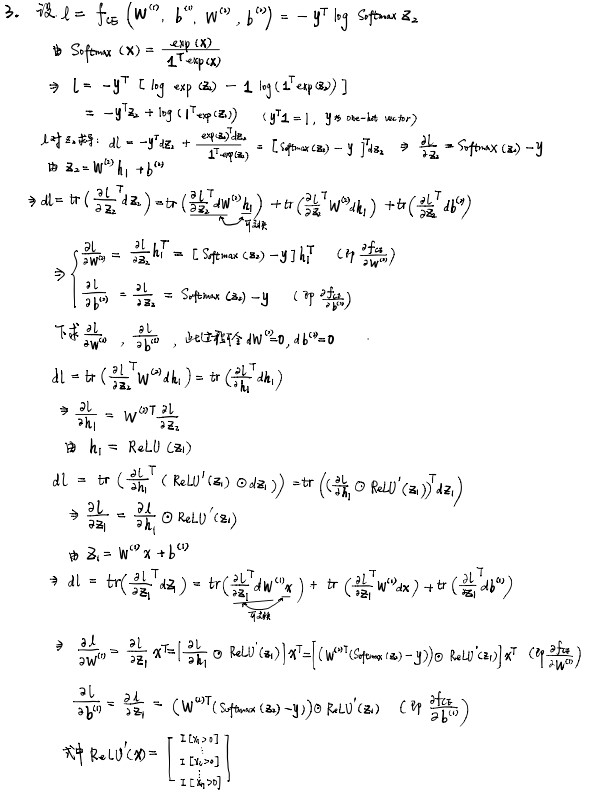 3. 设 l = f_CE (W^(1), b^(1), W^(2), b^(2)) = -y^T log Softmax z₂
由 Softmax (x) = exp(x) / 1^T exp(x)
⇒ l = -y^T [log exp(z₂) - 1 log(1^T exp(z₂))]
= -y^T z₂ + log(1^T exp(z₂)) (y^T 1 = 1, y为 one-hot vector)
l对z₂求导: dl = -y^T dz₂ + exp(z₂)^T dz₂ / 1^T exp(z₂) = [Softmax(z₂) - y]^T dz₂ ⇒ ∂l/∂z₂ = Softmax(z₂) - y
由 z₂ = W^(2) h₁ + b^(2)
⇒ dl = tr(∂l/∂z₂^T dz₂) = tr(∂l/∂z₂^T dW^(2) h₁) + tr(∂l/∂z₂^T W^(2) dh₁) + tr(∂l/∂z₂^T db^(2))
可交换
⇒ { ∂l/∂W^(2) = ∂l/∂z₂ h₁^T = [Softmax(z₂) - y] h₁^T (即 ∂f_CE/∂W^(2))
∂l/∂b^(2) = ∂l/∂z₂ = Softmax(z₂) - y (即 ∂f_CE/∂b^(2))
下求 ∂l/∂W^(1), ∂l/∂b^(1), 令 dW^(2)=0, db^(2)=0
dl = tr(∂l/∂z₂^T W^(2) dh₁) = tr(∂l/∂h₁^T dh₁)
⇒ ∂l/∂h₁ = W^(2)T ∂l/∂z₂
由 h₁ = ReLU(z₁)
dl = tr(∂l/∂h₁^T (ReLU'(z₁) ⊙ dz₁)) = tr((∂l/∂h₁ ⊙ ReLU'(z₁))^T dz₁)
⇒ ∂l/∂z₁ = ∂l/∂h₁ ⊙ ReLU'(z₁)
由 z₁ = W^(1) x + b^(1)
⇒ dl = tr(∂l/∂z₁^T dz₁) = tr(∂l/∂z₁^T dW^(1) x) + tr(∂l/∂z₁^T W^(1) dx) + tr(∂l/∂z₁^T db^(1))
可交换
⇒ ∂l/∂W^(1) = ∂l/∂z₁ x^T = [∂l/∂h₁ ⊙ ReLU'(z₁)] x^T = [(W^(2)T (Softmax(z₂) - y)) ⊙ ReLU'(z₁)] x^T (即 ∂f_CE/∂W^(1))
∂l/∂b^(1) = ∂l/∂z₁ = (W^(2)T (Softmax(z₂) - y)) ⊙ ReLU'(z₁) (即 ∂f_CE/∂b^(1))
式中 ReLU'(x) = [ I[x₁>0]
⋮
I[xᵢ>0]
⋮
I[xₙ>0] ]